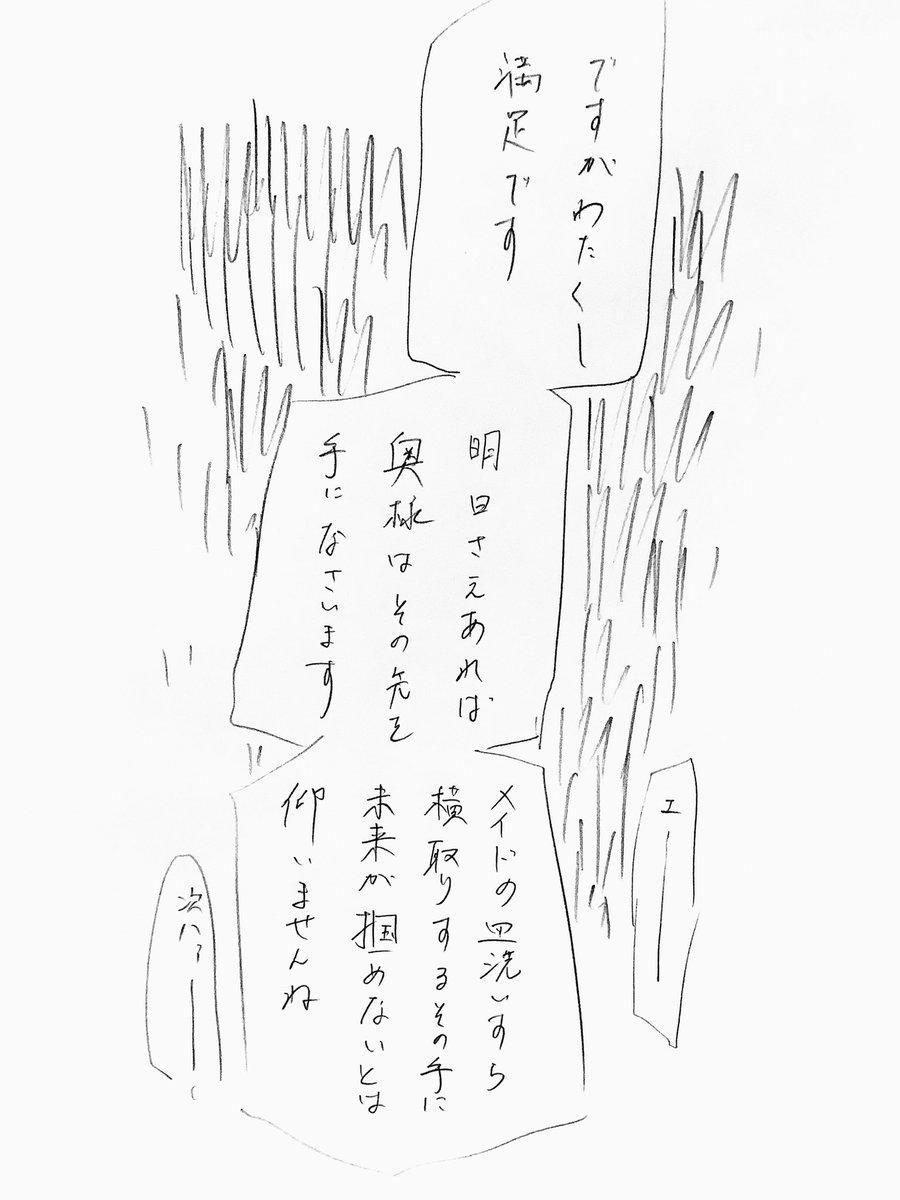 ですがわたくし
満足です
明日さえあれば
奥様はその先を
手になさいます
メイドの皿洗いすら
横取りするその手に
未来が掴めないとは
仰いませんね
エーー
次ハァーー